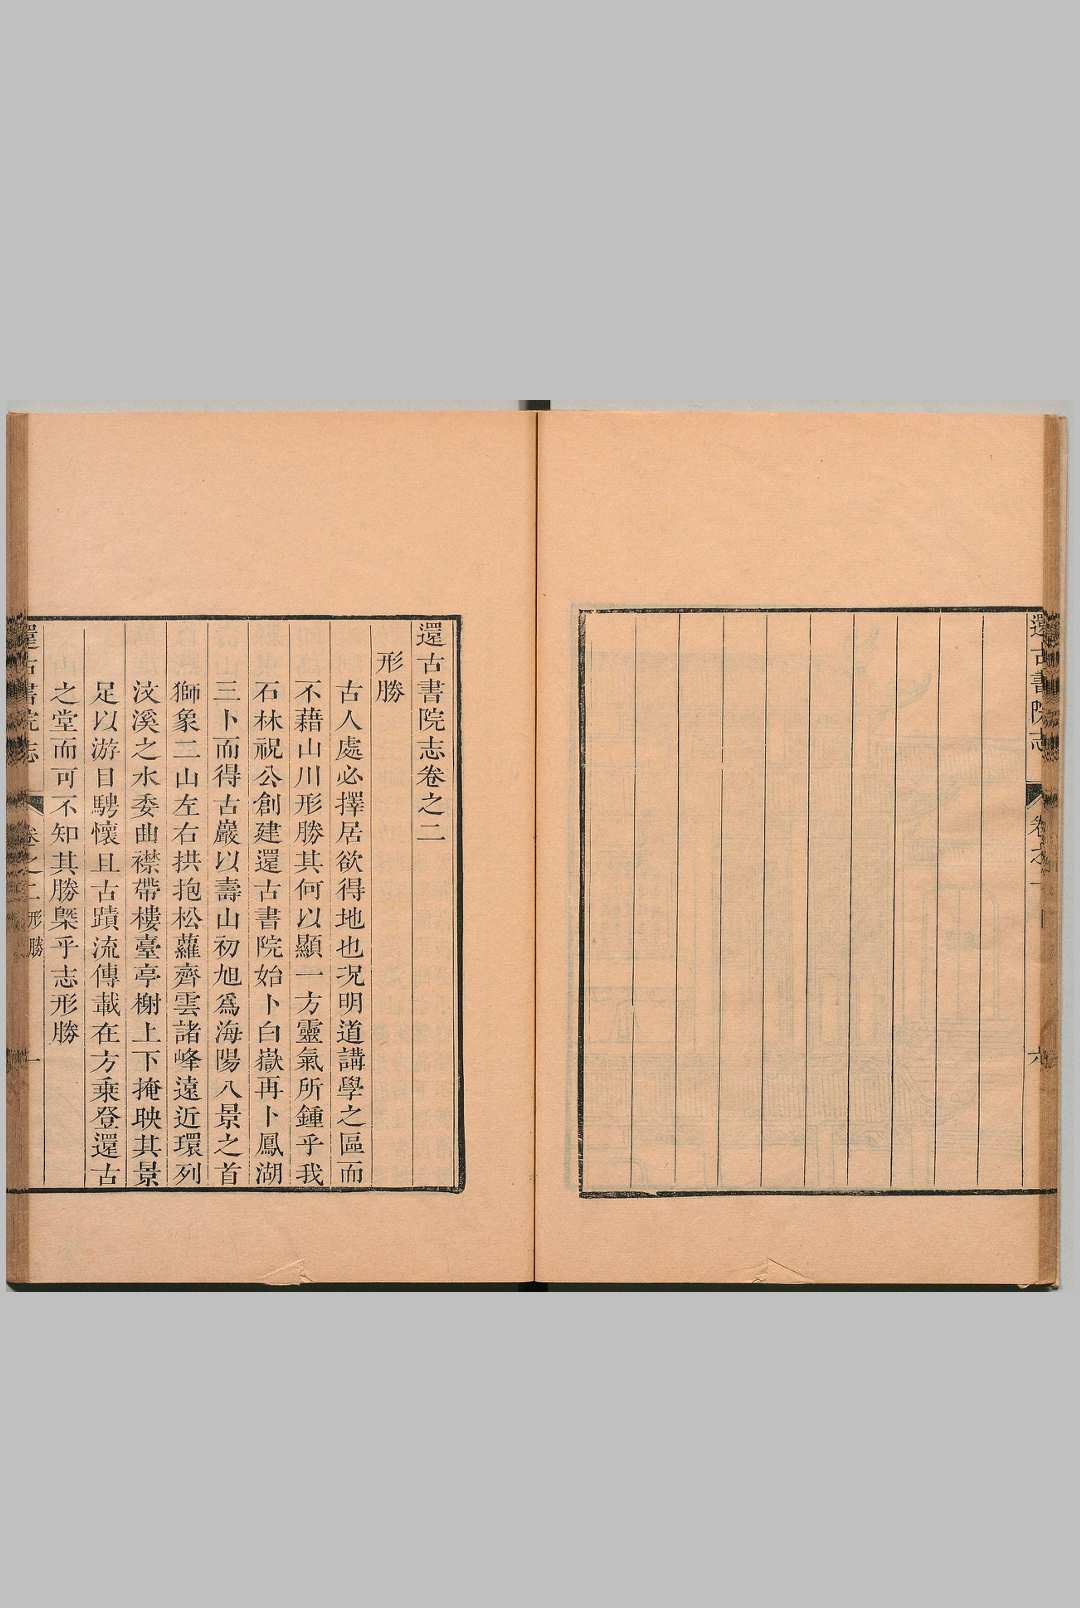 還古書院志
卷之一
六
還古書院志卷之二
形勝
古人處必擇居欲得地也况明道講學之區而
不藉山川形勝其何以顯一方靈氣所鍾乎我
石林祝公創建還古書院始卜白嶽再卜鳳湖
三卜而得古巖以壽山初旭爲海陽八景之首
獅象二山左右拱抱松蘿齊雲諸峰遠近環列
汶溪之水委曲襟帶樓臺亭榭上下掩映其景
足以游目騁懷且古蹟流傳載在方乗登還古
之堂而可不知其勝槩乎志形勝
還古書院志
卷之二形勝
一